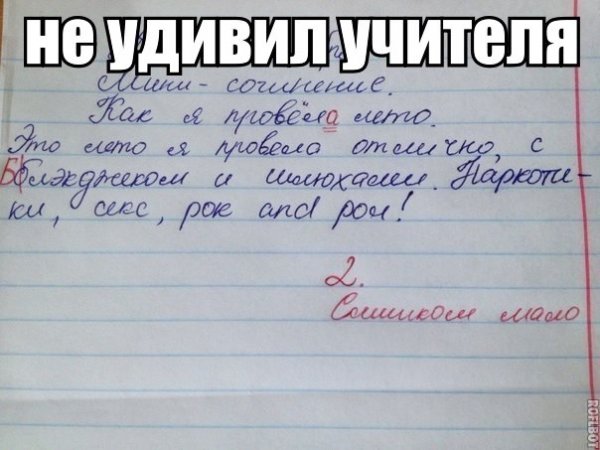 не удивил учителя
Мини-сочинение.
Как я провёла лето.
Это лето я провела отлично, с
Блэкджеком и шлюхами. Наркоти-
ки, секс, рок and рол!
2.
Слишком мало
ROFLBOT